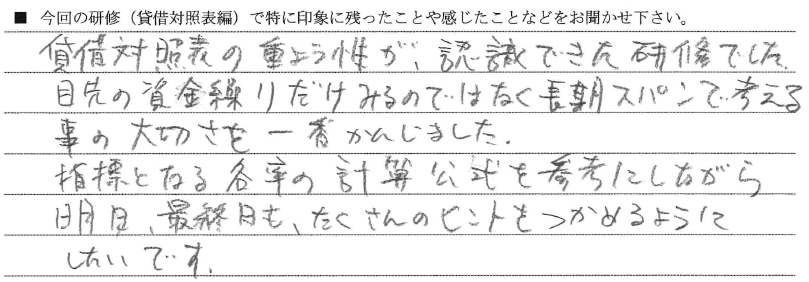 ■ 今回の研修（貸借対照表編）で特に印象に残ったことや感じたことなどをお聞かせ下さい。
貸借対照表の重よう性が、認識できた研修でした。
目先の資金繰りだけみるのではなく長期スパンで考える
事の大切さを一番かんじました。
指標となる各率の計算公式を参考にしながら
明日、最終日も、たくさんのヒントをつかめるように
したいです。